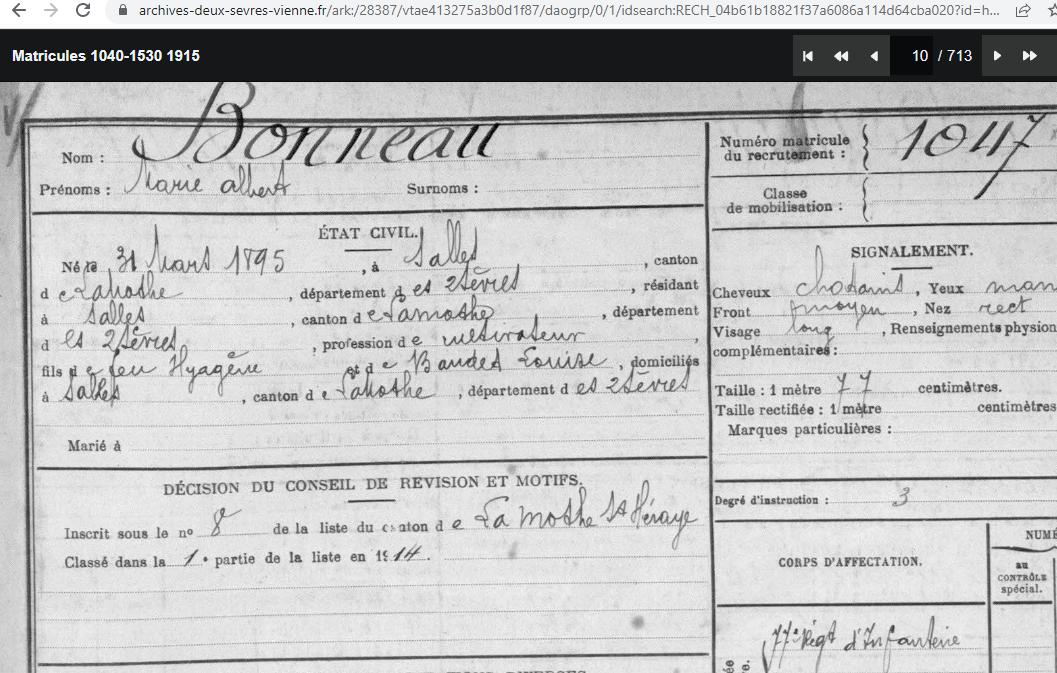 archives-deux-sevres-vienne.fr/ark:/28387/vtae413275a3b0d1f87/daogrp/0/1/idsearch:RECH_04b61b18821f37a6086a114d64cba020?id=h...
Matricules 1040-1530 1915
10 / 713
Nom : Bonneau
Prénoms : Marie albert Surnoms :
Numéro matricule
du recrutement : 1047
Classe
de mobilisation :
ÉTAT CIVIL.
Né le 31 Mars 1895 , à Salles , canton
d e Lamothe , département d es 2 Sèvres , résidant
à Salles , canton d e Lamothe , département
d es 2 Sèvres , profession d e ,
fils d e feu et d e Louise , domiciliés
à Salles , canton d e Lamothe , département d es 2 Sèvres
Marié à
SIGNALEMENT.
Cheveux chatains , Yeux mar
Front moyen , Nez rect
Visage long , Renseignements physion
complémentaires :
Taille : 1 mètre 77 centimètres.
Taille rectifiée : 1 mètre centimètres
Marques particulières :
Degré d'instruction : 3
DÉCISION DU CONSEIL DE REVISION ET MOTIFS.
Inscrit sous le no 8 de la liste du canton d e La Mothe St Héraye
Classé dans la 1e partie de la liste en 1914.
CORPS D'AFFECTATION.
NUMÉ
au
CONTRÔLE
spécial.
77e Régt d'Infanterie